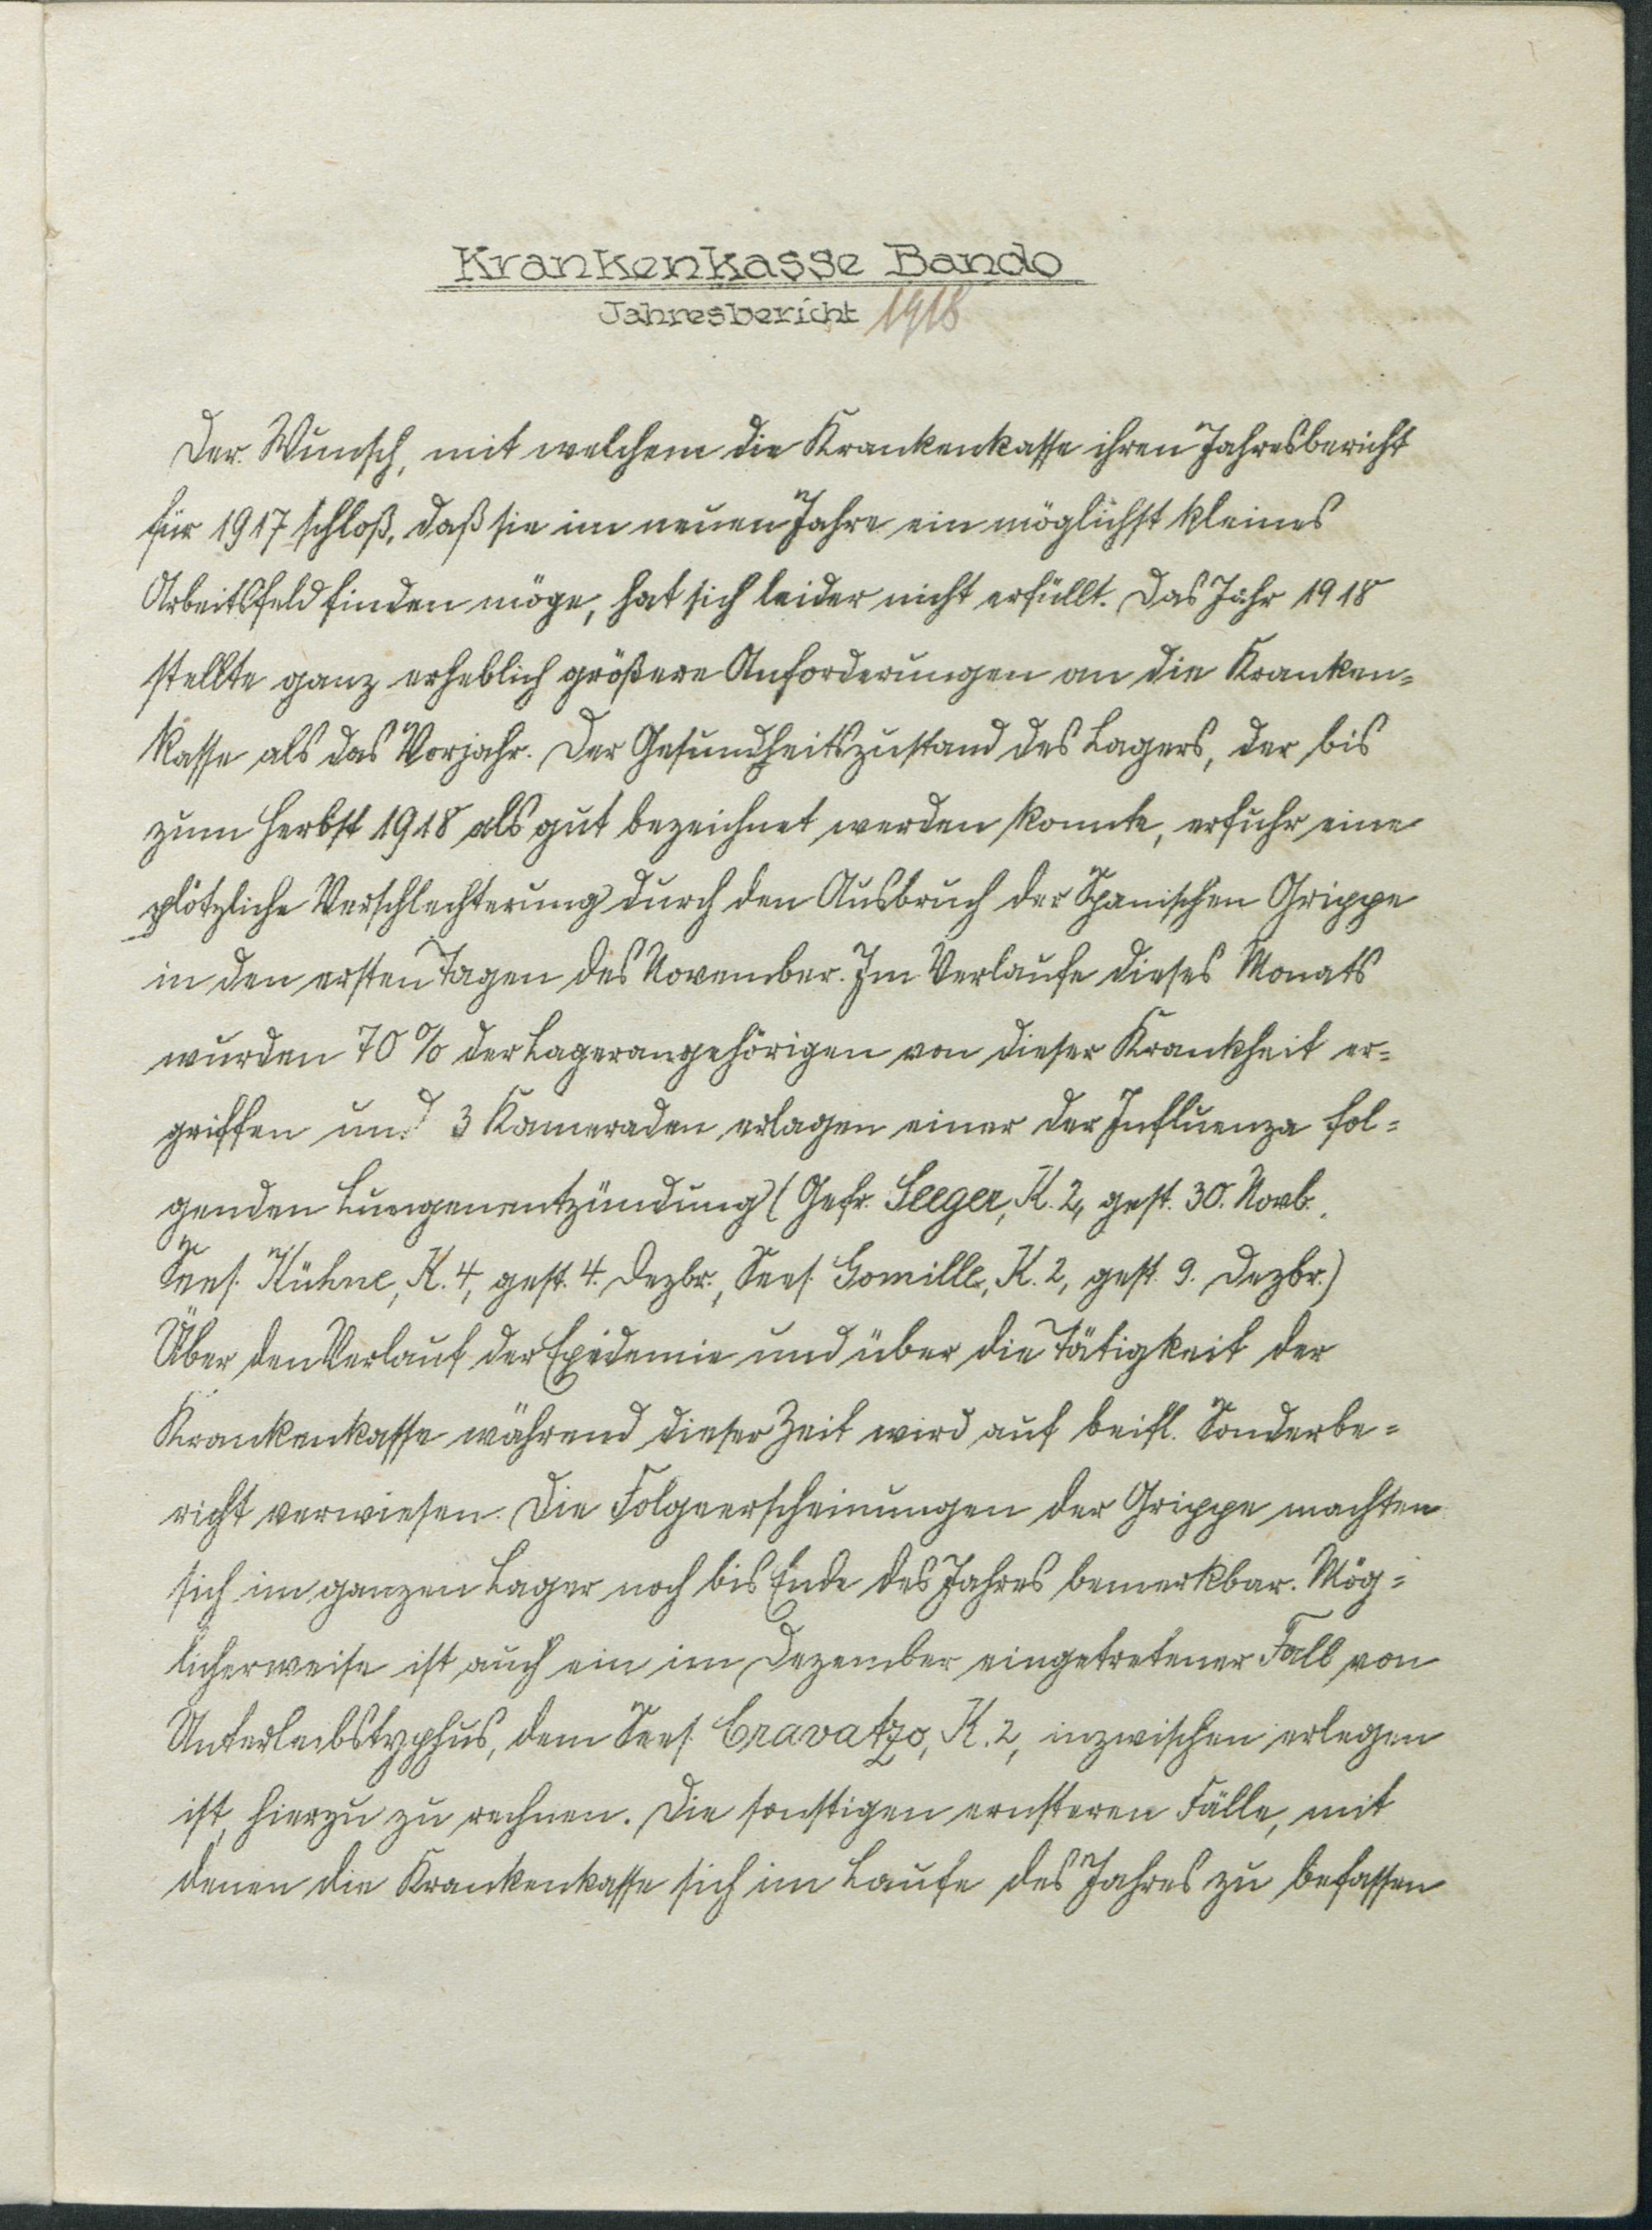 Krankenkasse Bando
Jahresbericht 1918
Der Wunsch, mit welchem die Krankenkasse ihren Jahresbericht
für 1917 schloß, daß sie im neuen Jahre ein möglichst kleines
Arbeitsfeld finden möge, hat sich leider nicht erfüllt. Das Jahr 1918
stellte ganz erheblich größere Anforderungen an die Kranken=
kasse als das Vorjahr. Der Gesundheitszustand des Lagers, der bis
zum Herbst 1918 als gut bezeichnet werden konnte, erfuhr eine
plötzliche Verschlechterung durch den Ausbruch der Spanischen Grippe
in den ersten Tagen des November. Im Verlaufe dieses Monats
wurden 70% der Lagerangehörigen von dieser Krankheit er=
griffen und 3 Kameraden erlagen einer der Influenza fol=
genden Lungenentzündung (Gefr. Seeger, K. 2, gest. 30. Novb.,
Sees. Kühne, K. 4, gest. 4. Dezbr., Sees. Gomille, K. 2, gest. 9. Dezbr.)
Über den Verlauf der Epidemie und über die Tätigkeit der
Krankenkasse während dieser Zeit wird auf beifl. Sonderbe=
richt verwiesen. Die Folgeerscheinungen der Grippe machten
sich im ganzen Lager noch bis Ende des Jahres bemerkbar. Mög=
licherweise ist auch ein im Dezember eingetretener Fall von
Unterleibstyphus, dem Sees. Cravatzo, K. 2, inzwischen erlegen
ist, hierzu zu rechnen. Die sonstigen ernsteren Fälle, mit
denen die Krankenkasse sich im Laufe des Jahres zu befassen